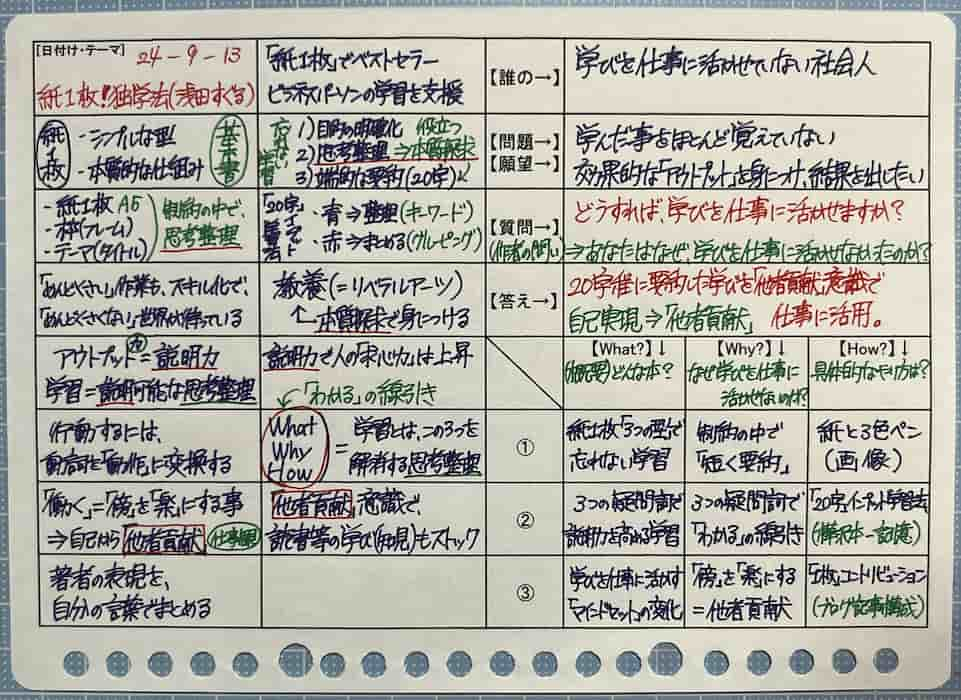 [日付け・テーマ] 24-9-13
紙1枚!独学法(浅田すぐる)
「紙1枚」でベストセラー
ビジネスパーソンの学習を支援
【誰の→】
学びを仕事に活かせていない社会人
紙1枚
- シンプルな型
- 本質的な仕組み
基本書
学習
1) 目的の明確化 役立つ
2) 思考整理 ⇒本質探求
3) 端的な要約(20字)
【問題→】
【願望→】
学んだ事をほとんど覚えていない
効果的な「アウトプット」を身につけ、結果を出したい
- 紙1枚A5
- 枠(フレーム)
- テーマ(タイトル)
制約の中で、
思考整理
「20字」インプット学習法
・青⇒整理(キーワード)
・赤⇒まとめる(グルーピング)
【質問→】
(作者の問い)
どうすれば、学びを仕事に活かせますか?
⇒あなたはなぜ、学びを仕事に活かせなかったのか?
「めんどくさい」作業も、スキル化で、
「めんどくさくない」世界が待っている
教養(=リベラルアーツ)
↑本質探求で身につける
【答え→】
20字程に要約した学びを「他者貢献」意識で
自己実現⇒「他者貢献」 仕事に活用。
アウトプット力=説明力
学習=説明可能な思考整理
説明力で人の「求心力」は上昇
↙「わかる」の線引き
【What?】↓
(概要)どんな本?
【Why?】↓
なぜ学びを仕事に
活かせないのか?
【How?】↓
具体的なやり方は?
行動するには、
動詞を「動作」に変換する
What
Why
How
= 学習とは、この3つを
解消する思考整理
①
紙1枚「3つの型」で
忘れない学習
制約の中で
「短く要約」
紙と3色ペン
(画像)
「働く」=「傍」を「楽」にする事
⇒自己から「他者貢献」 仕事観
「他者貢献」意識で、
読者等の学び(知見)もストック
②
3つの疑問詞で
説明力を高める学習
3つの疑問詞で
「わかる」の線引き
「20字」インプット学習法
著者の表現を、
自分の言葉でまとめる
③
学びを仕事に活かす
「マインドセット」の変化
「傍」を「楽」にする
=他者貢献
「1枚」コントリビューション
(ブログ記事構成)